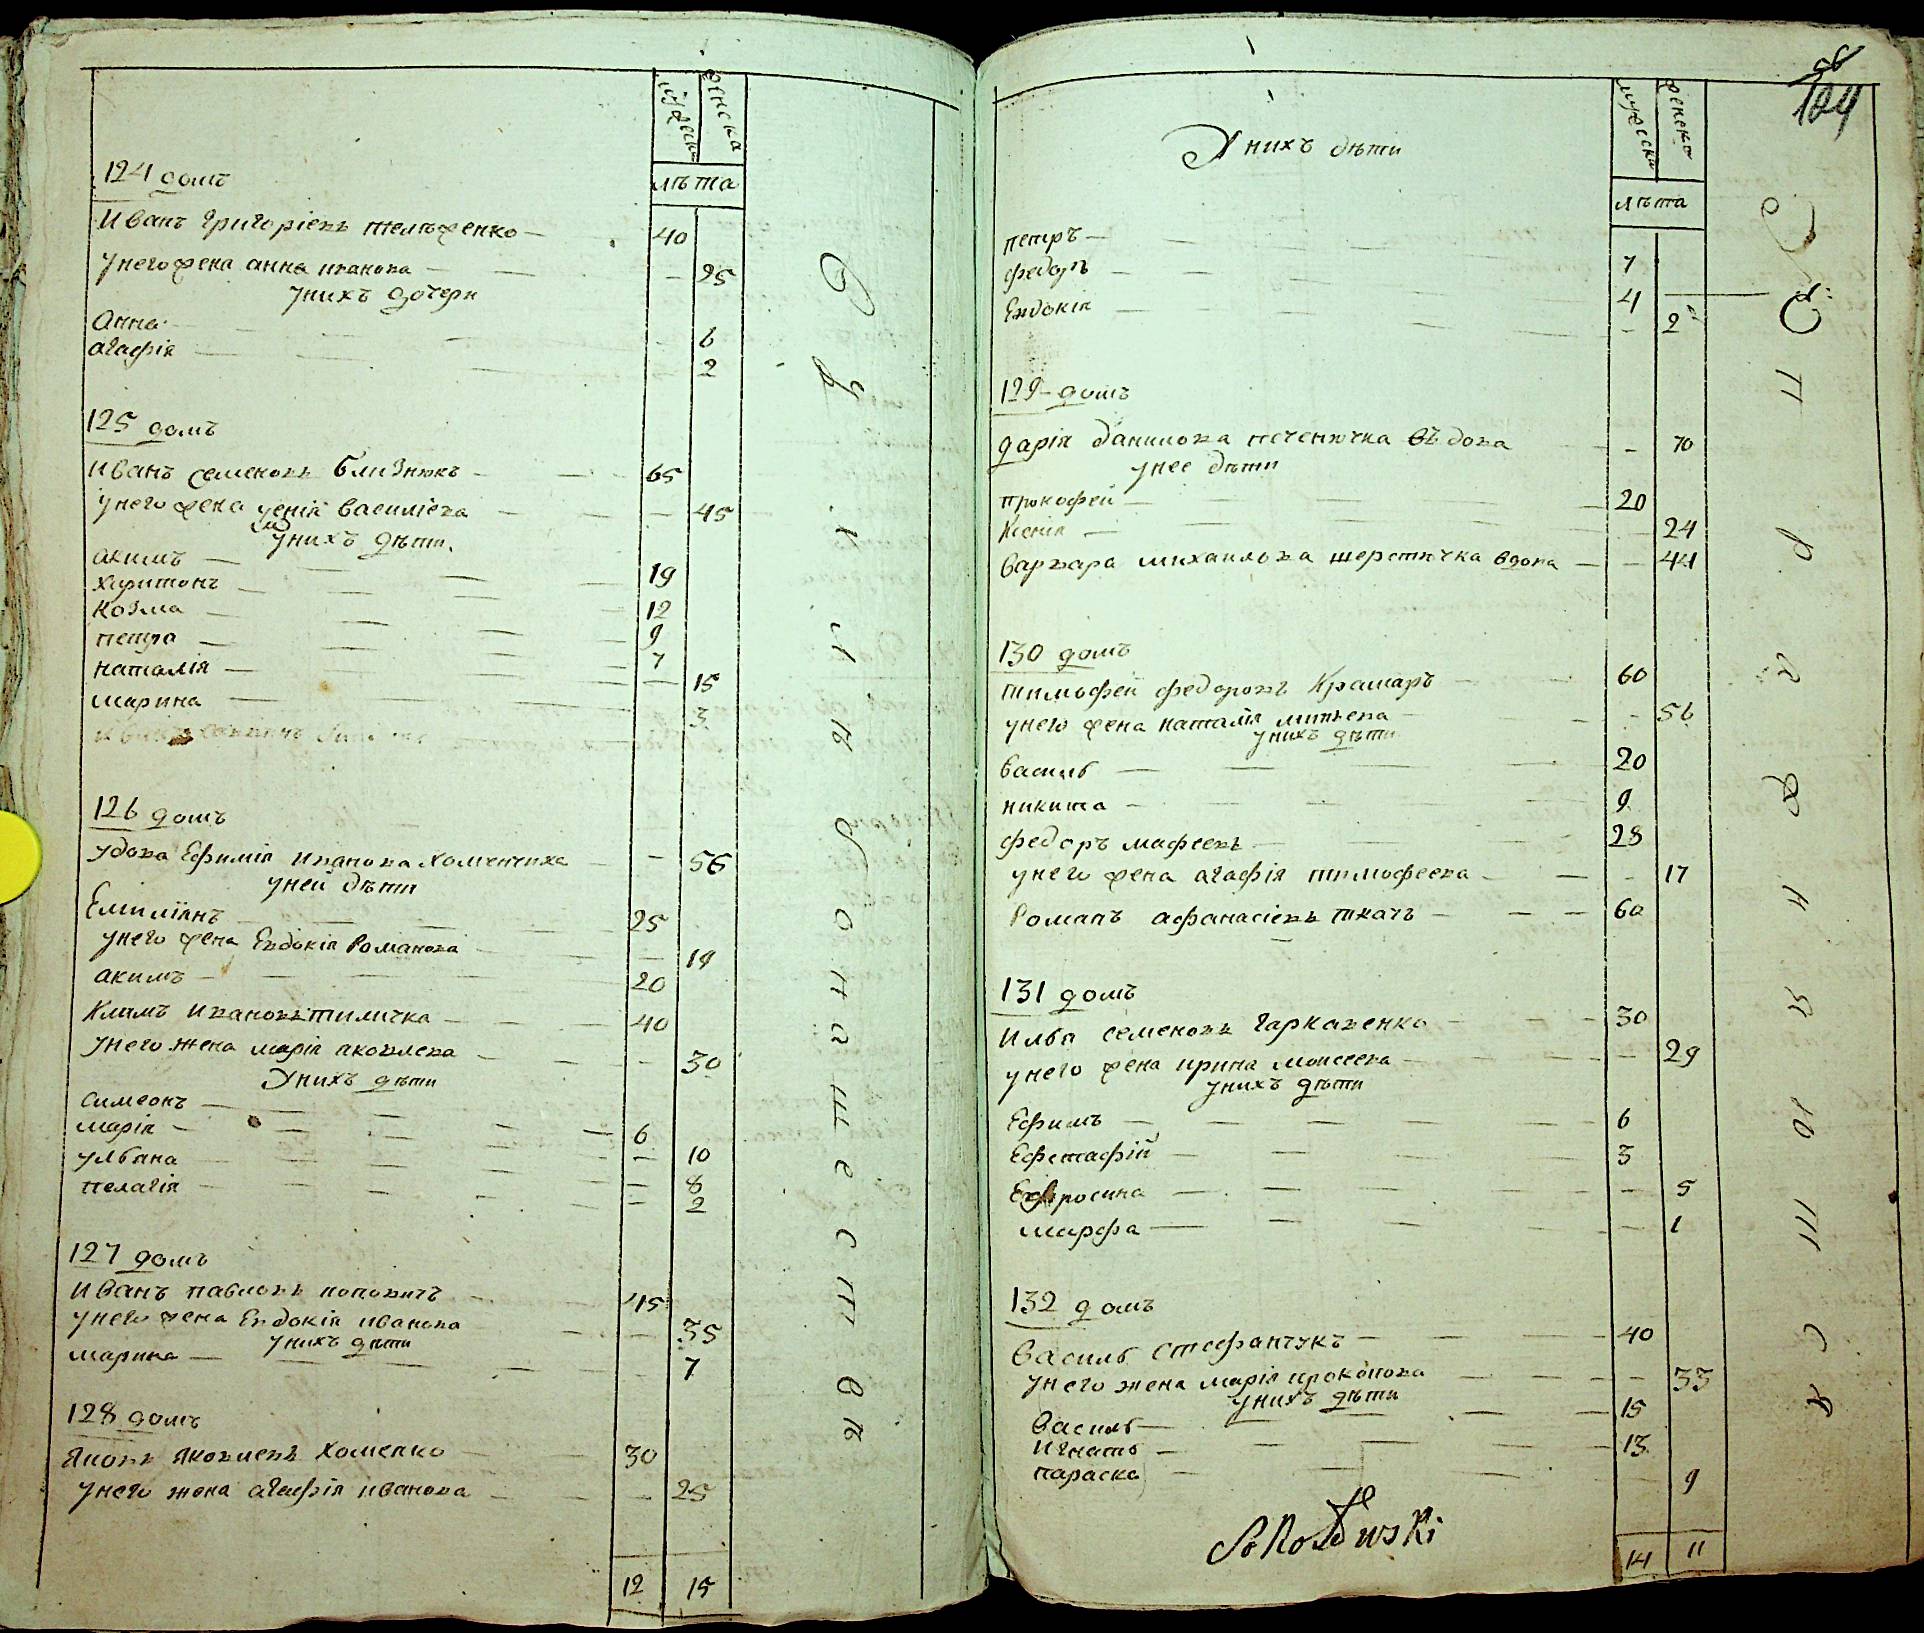 мужеска женска
лѣта
124 домъ
Иванъ Григоріевъ Шелѣженко 40
у него жена Анна Иванова 25
у нихъ дочери
Анна 6
Агафія 2
125 домъ
Иванъ Семеновъ Близнюкъ 65
у него жена Ксенія Василіева 45
у нихъ дѣти
Акимъ 19
Харитонъ 12
Козма 9
Петро 7
Наталія 15
Марина 3
126 домъ
удова Ефимія Иванова Хоменчиха 56
у ней дѣти
Емиліянъ 25
у него жена Евдокія Романова 19
Акимъ 20
Климъ Ивановъ Тиличка 40
у него жена Марія Яковлева 30
У нихъ дѣти
Симеонъ 6
Марія 10
Улбяна 8
Пелагія 2
127 домъ
Иванъ Павловъ Поповичъ 45
у него жена Евдокія Иванова 35
у нихъ дѣти
Марина 7
128 домъ
Яковъ Яковлевъ Хоменко 30
у него жена Агафія Иванова 25
12 15
56
104
мужеска женска
лѣта
У нихъ дѣти
Петръ 7
Федоръ 4
Евдокія 2
129 домъ
Дарія Данилова Печенючка въдова 70
у нее дѣти
Прокофей 20
Ксенія 24
Варвара Михаилова Шерстючка вдова 44
130 домъ
Тимофей Федоровъ Крамаръ 60
у него жена Наталія 56
у нихъ дѣти
Василь 20
Никита 9
Федоръ Мафеевъ 28
у него жена Агафія Тимофеева 17
Романъ Афанасіевъ Ткачъ 60
131 домъ
Илья Семеновъ Гаркавенко 30
у него жена Ирина Моисеева 29
у нихъ дѣти
Ефимъ 6
Ефстафій 3
Ефросина 5
Марфа 1
132 домъ
Василь Стефанчукъ 40
у него жена Марія Прокопова 33
у нихъ дѣти
Василь 15
Игнатъ 13
Параска 9
Sokołowski
14 11